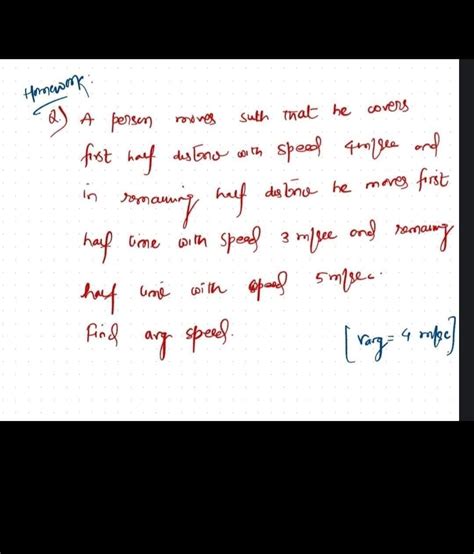 Homework:
Q) A person moves such that he covers
first half distance with speed 4m/sec and
in remaining half distance he moves first
half time with speed 3 m/sec and remaining
half time with speed 5m/sec.
Find avg speed. [vavg = 4 m/sec]